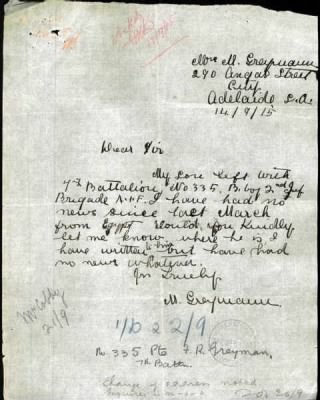 Mrs M. Greymann
290 Angas Street
City
Adelaide, S.A.
14/9/15
Dear Sir
My Son left with
7th Battalion, No 335, B. Coy 2nd Inf
Brigade A.I.F. I have had no
news since last March
from Egypt Would you Kindly
let me know where he is I
have written but have had
no news whatever.
Yrs Truely.
M. Greymann.
22/9
No 335 Pte F. R. Greyman,
7th Battn.
Change of address noted